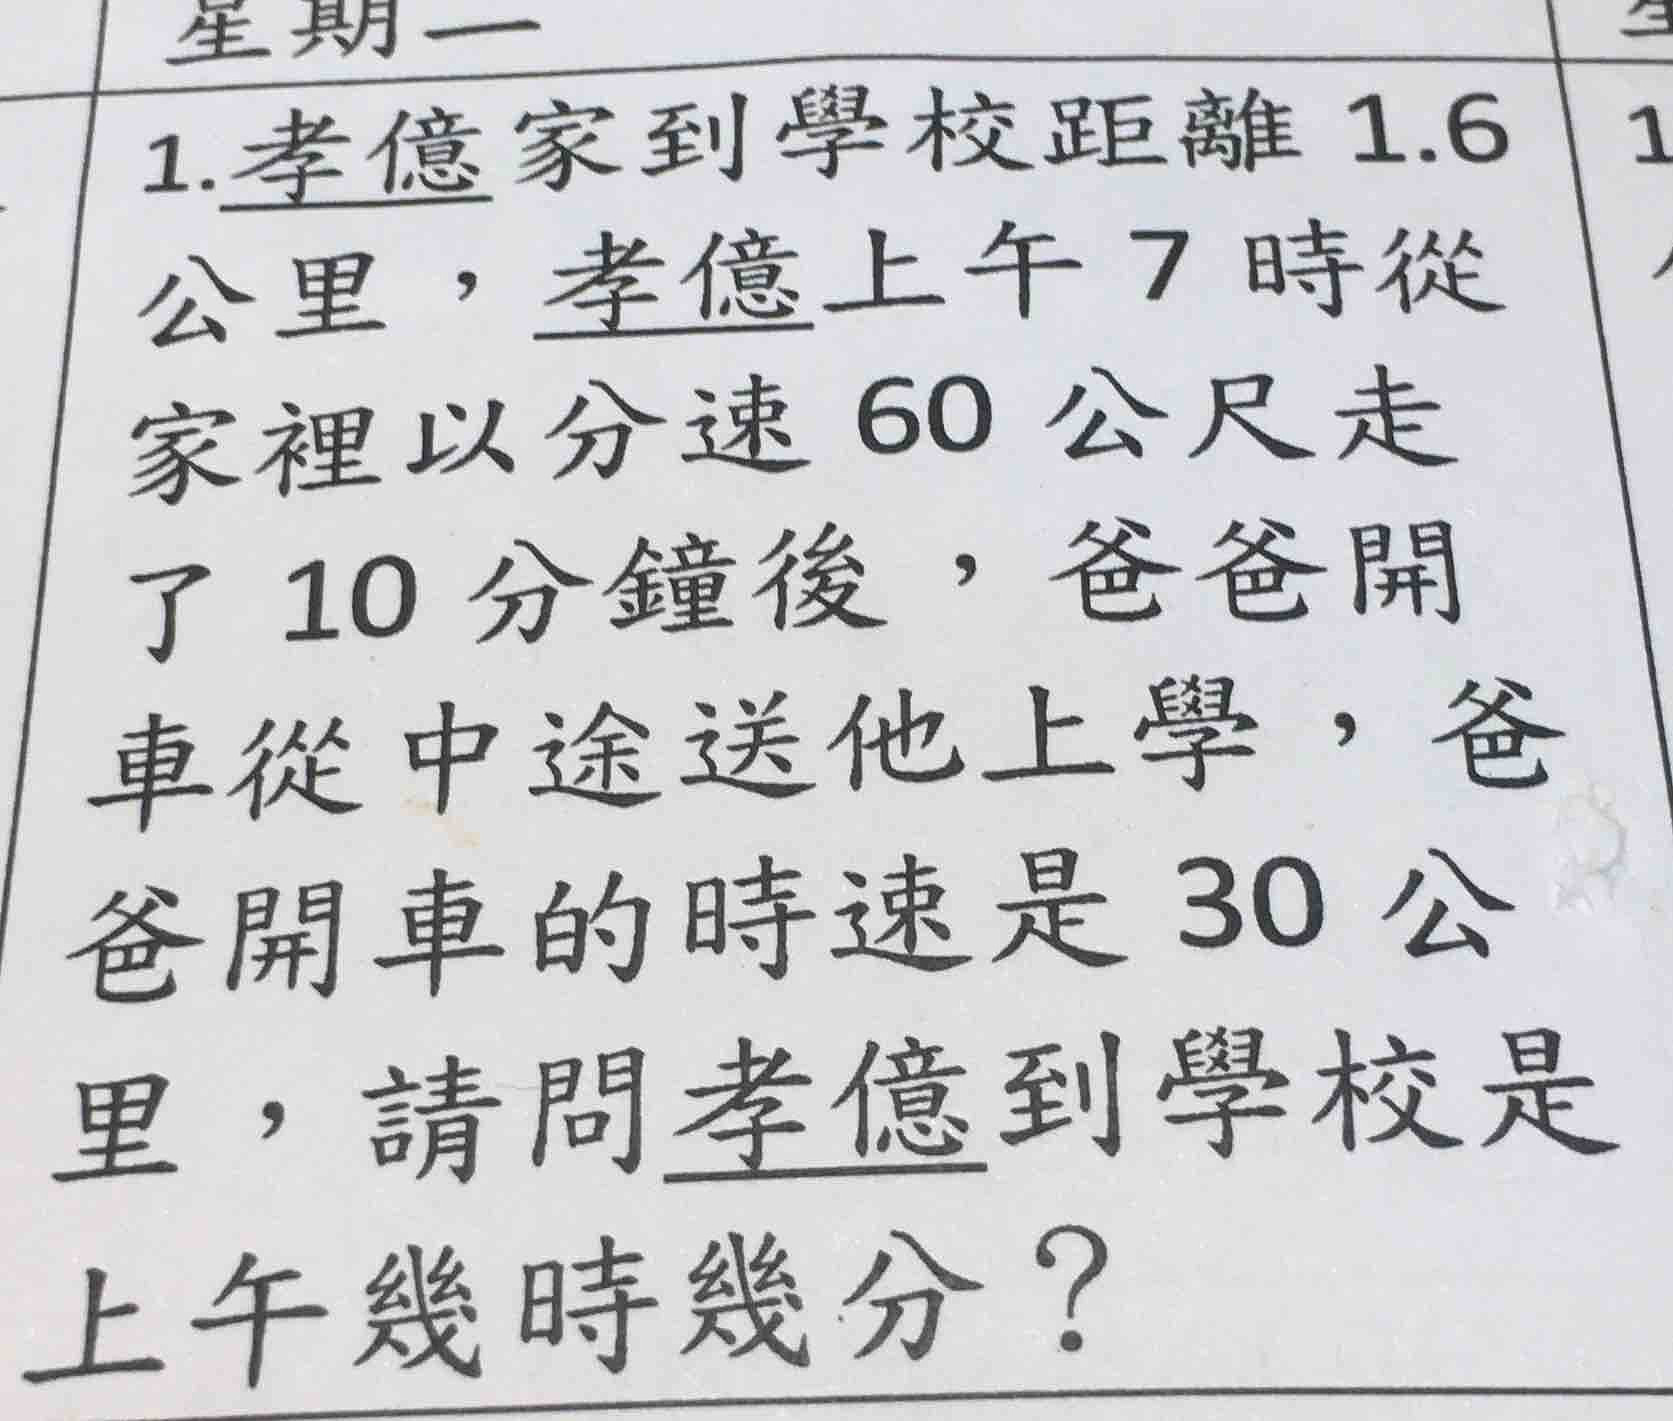 星期二
1.孝億家到學校距離 1.6
公里，孝億上午 7 時從
家裡以分速 60 公尺走
了 10 分鐘後，爸爸開
車從中途送他上學，爸
爸開車的時速是 30 公
里，請問孝億到學校是
上午幾時幾分？